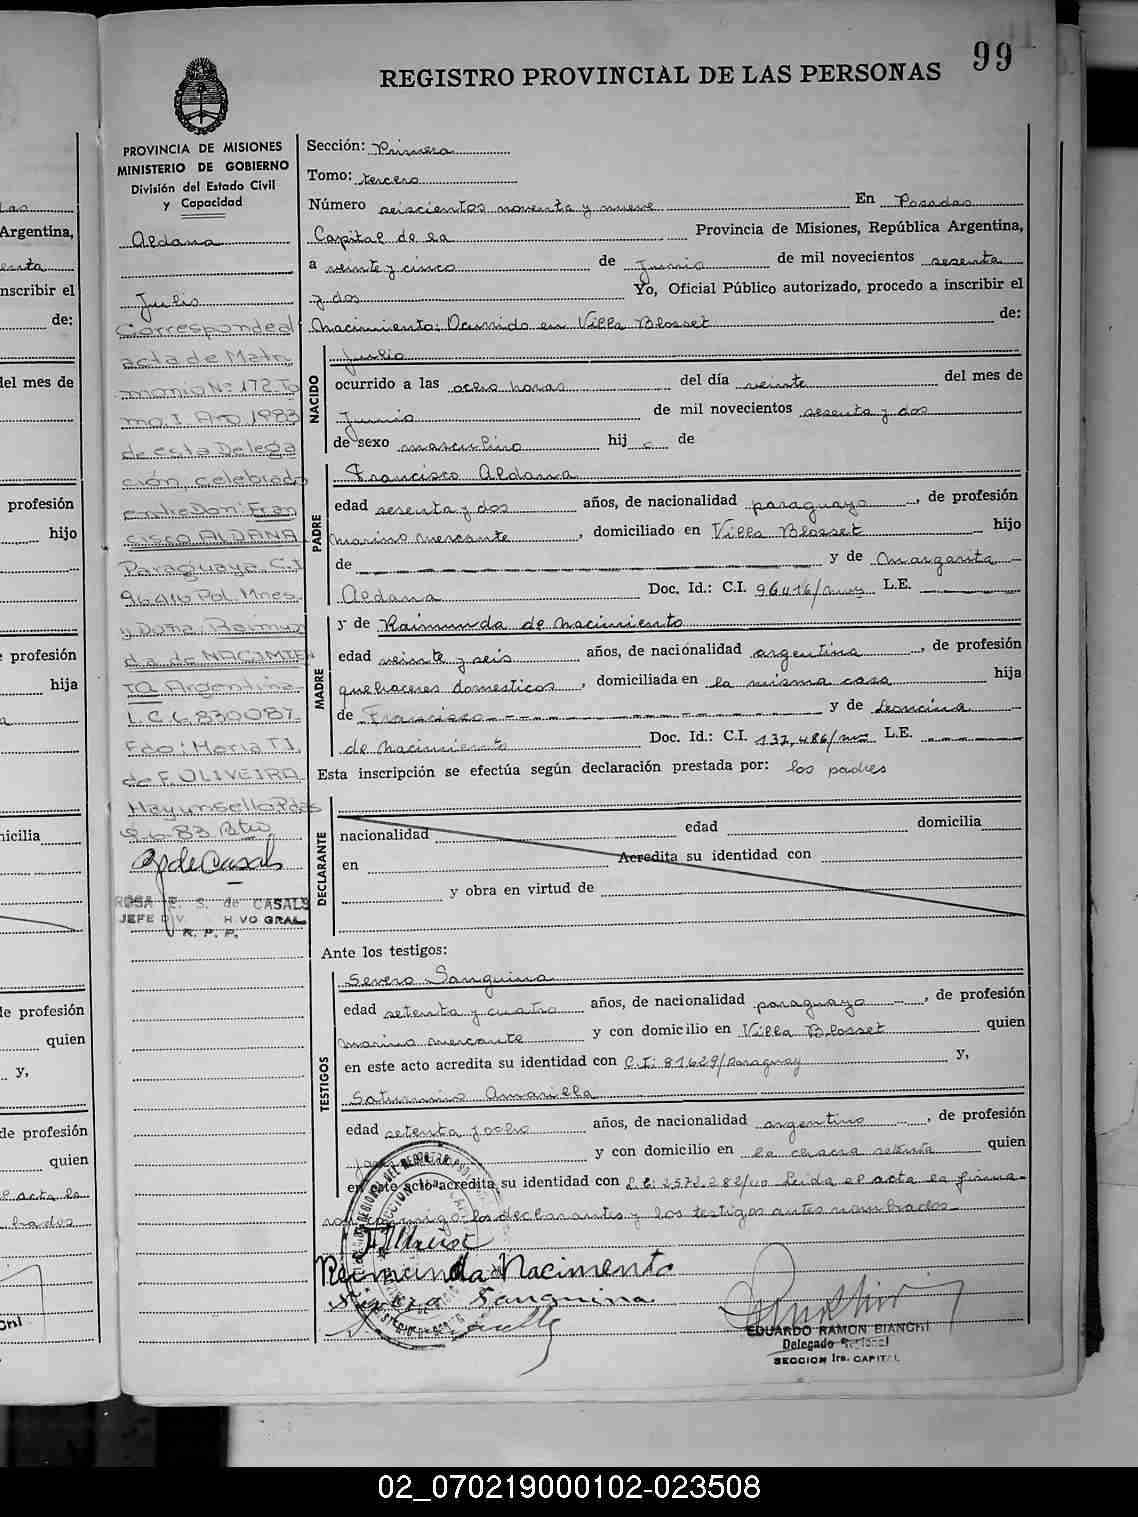 99
REGISTRO PROVINCIAL DE LAS PERSONAS
PROVINCIA DE MISIONES
MINISTERIO DE GOBIERNO
División del Estado Civil
y Capacidad
Aldana
Julio
Corresponde al
acta de Matri
monio Nº 172 To
mo. I. Año 1983
de esta Delega
ción, celebrado
entre Don: Fran
cisco ALDANA
Paraguaya C.I
96.416 Pol. Mnes.
y Doña: Raimun
da de NACIMIEN
TO Argentina
L.C 6.830087.
Fdo: Maria T.J.
de F. OLIVEIRA
Hay un sello Pdas
ROSA E. S. de CASALS
R. P. P.
Sección: Primera
Tomo: tercero
Número seiscientos noventa y nueve En Posadas
Capital de la Provincia de Misiones, República Argentina,
a veinte y cinco de Junio de mil novecientos sesenta
y dos Yo, Oficial Público autorizado, procedo a inscribir el
Nacimiento: Ocurrido en Villa Blosset de:
NACIDO
Julio
ocurrido a las ocho horas del día veinte del mes de
Junio de mil novecientos sesenta y dos
de sexo masculino hij o de
PADRE
Francisco Aldana
edad sesenta y dos años, de nacionalidad paraguayo, de profesión
marino mercante, domiciliado en Villa Blosset hijo
de y de Margarita
Aldana Doc. Id.: C.I. 96416/Mns L.E.
MADRE
y de Raimunda de Nacimiento
edad veinte y seis años, de nacionalidad argentina, de profesión
quehaceres domesticos, domiciliada en la misma casa hija
de Francisco y de Leoncina
de Nacimiento Doc. Id.: C.I. 137,486/mns L.E.
Esta inscripción se efectúa según declaración prestada por: los padres
DECLARANTE
nacionalidad edad domicilia
en Acredita su identidad con
y obra en virtud de
Ante los testigos:
TESTIGOS
Severo Sanguina
edad setenta y cuatro años, de nacionalidad paraguayo, de profesión
marino mercante y con domicilio en Villa Blosset quien
en este acto acredita su identidad con C.I: 81629/Paraguay y,
Saturnino Amarilla
edad setenta y ocho años, de nacionalidad argentino, de profesión
y con domicilio en la chacra setenta quien
en este acto acredita su identidad con 2572.282/40 Leida el acta la firma-
ron conmigo los declarantes y los testigos antes nombrados
Reimunda Nacimento
Severo Sanguina
EDUARDO RAMON BIANCHI
Delegado Regional
SECCION 1ra. CAPITAL
02_070219000102-023508